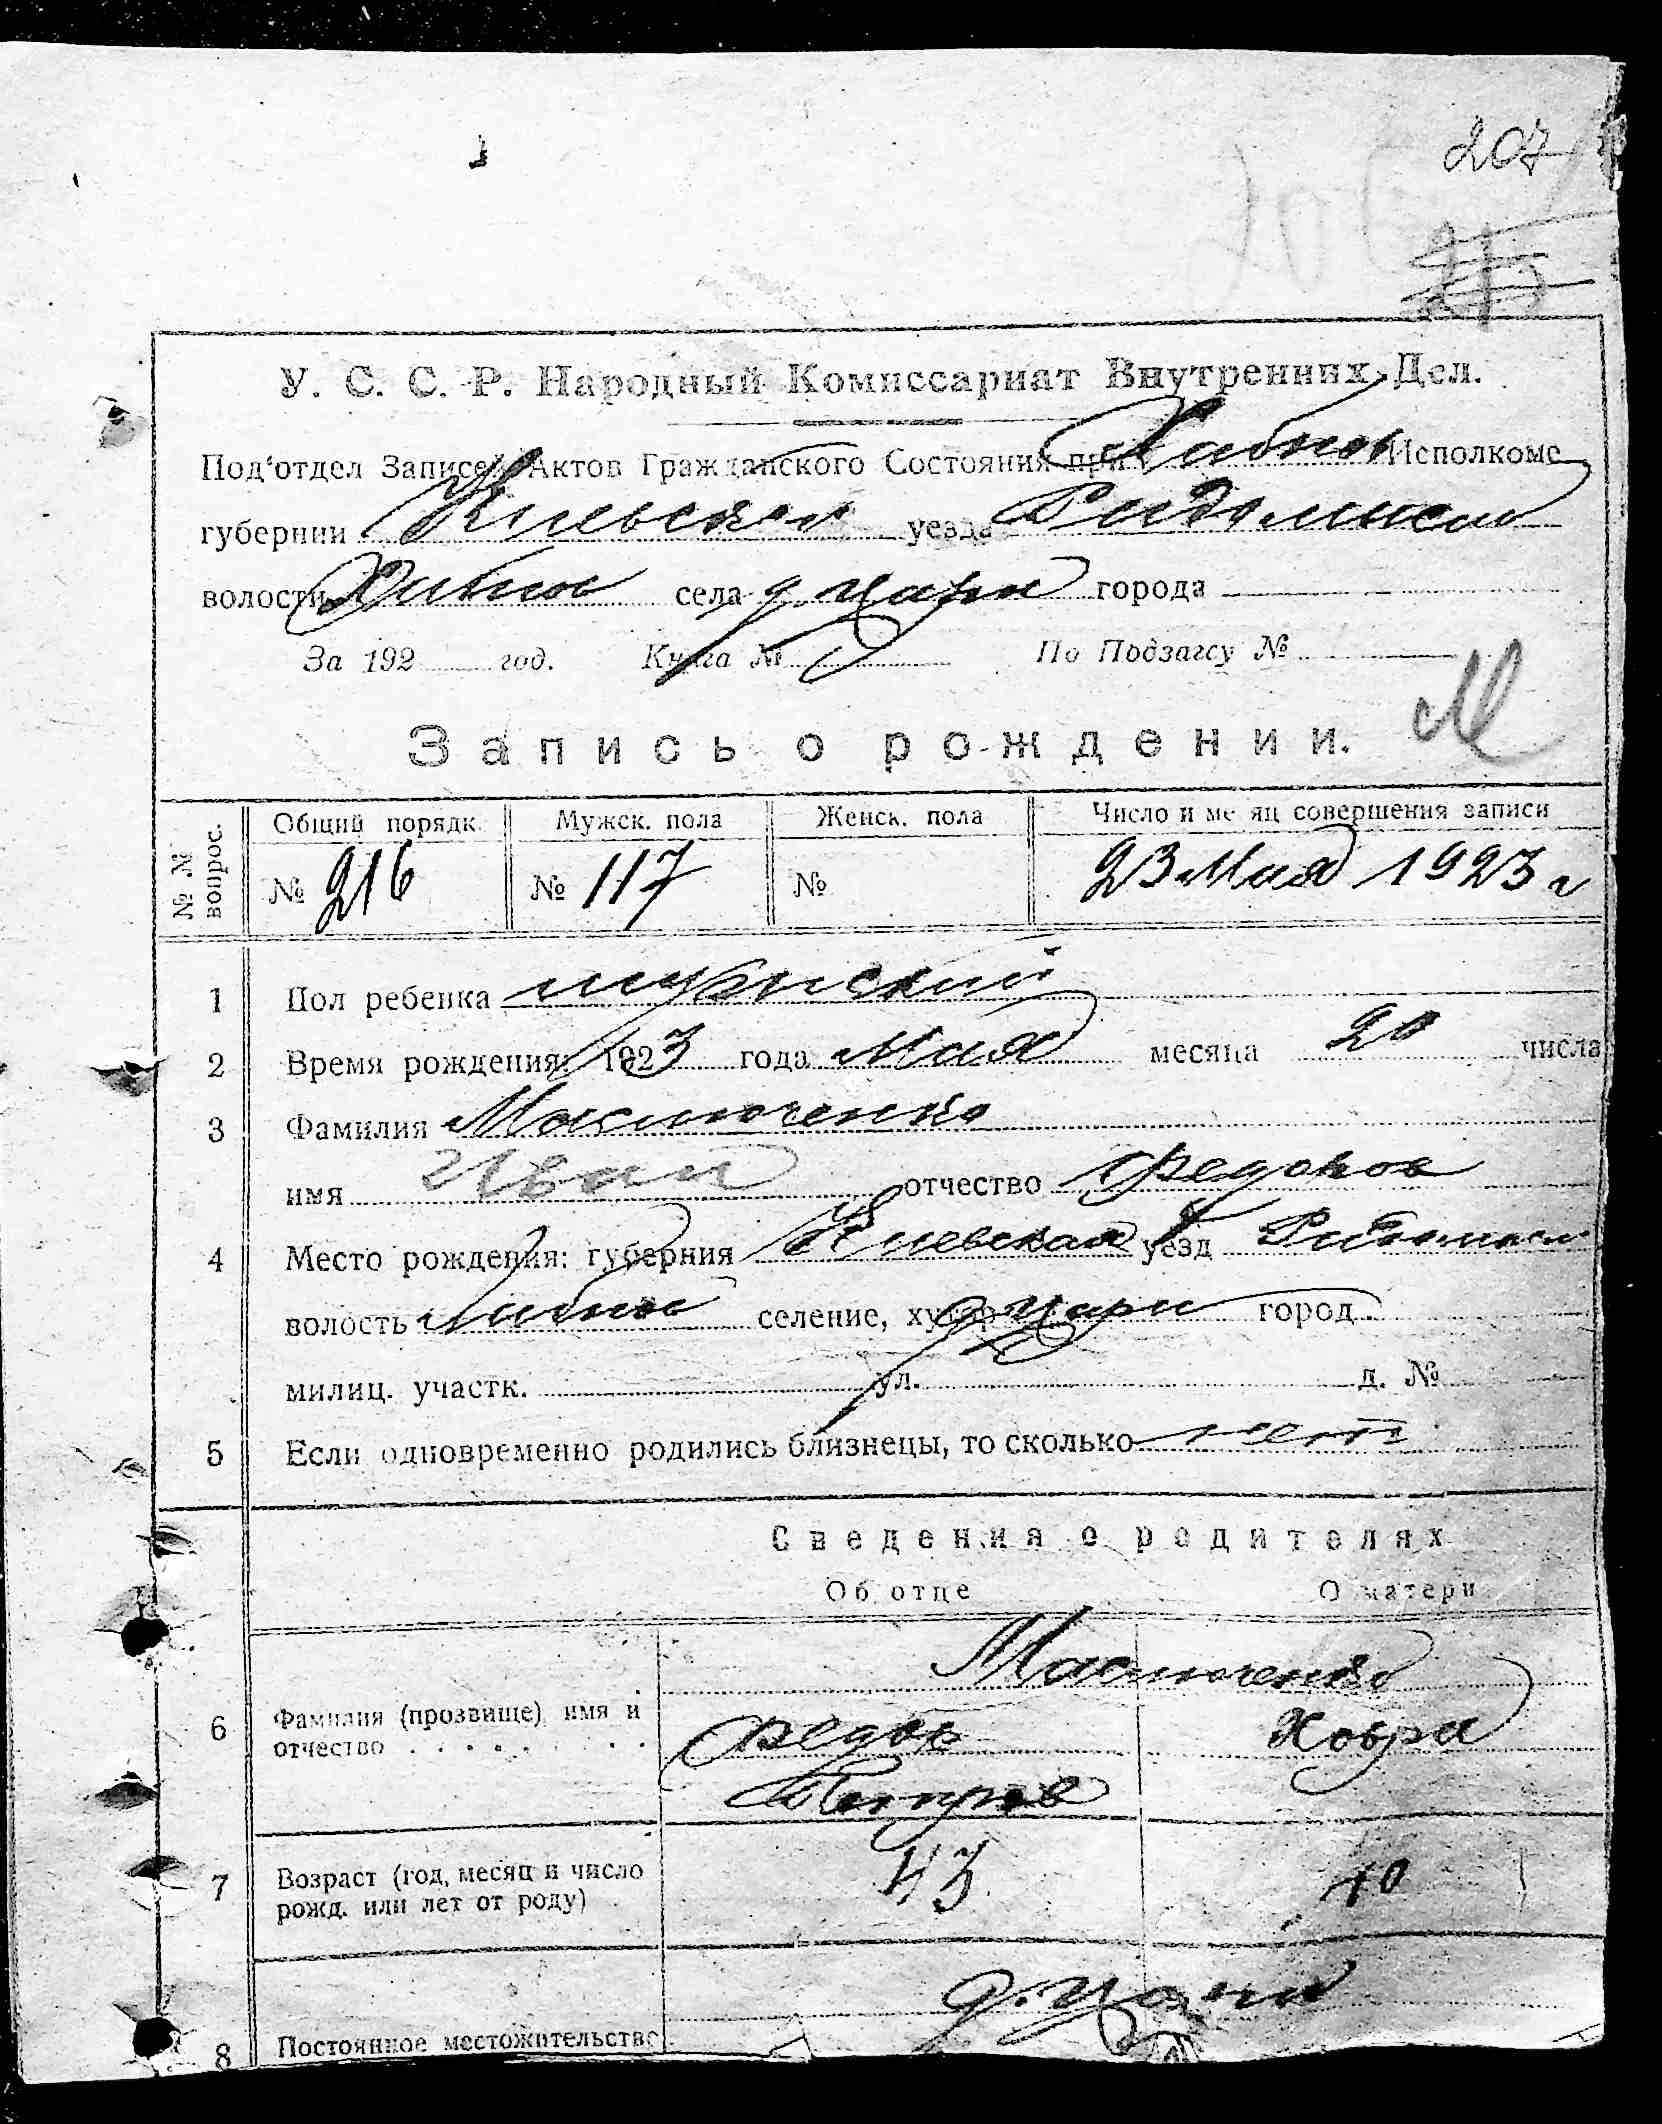 207
У. С. С. Р. Народный Комиссариат Внутренних Дел.
Под'отдел Записей Актов Гражданского Состояния при Хабнов Исполкоме
губернии Киевской уезда Радомысл
волости Хабнов села д Цари города
За 192 год. Книга № По Подзагсу №
М
Запись о рождении.
№№ вопрос. Общий порядк. Мужск. пола Женск. пола Число и месяц совершения записи
№ 216 № 117 № 23 Мая 1923 г
1 Пол ребенка мужский
2 Время рождения: 1923 года Мая месяца 20 числа
3 Фамилия Маслюченко
имя Иван отчество Федоров
4 Место рождения: губерния Киевская уезд Радомысл
волость Хабнов селение, хутор д Цари город.
милиц. участк. ул. д. №
5 Если одновременно родились близнецы, то сколько нет
Сведения о родителях
Об отце О матери
Маслюченко
6 Фамилия (прозвище) имя и
отчество Федор Ховра
Петров
7 Возраст (год, месяц и число
рожд. или лет от роду) 43 40
д. Цари
8 Постоянное местожительство